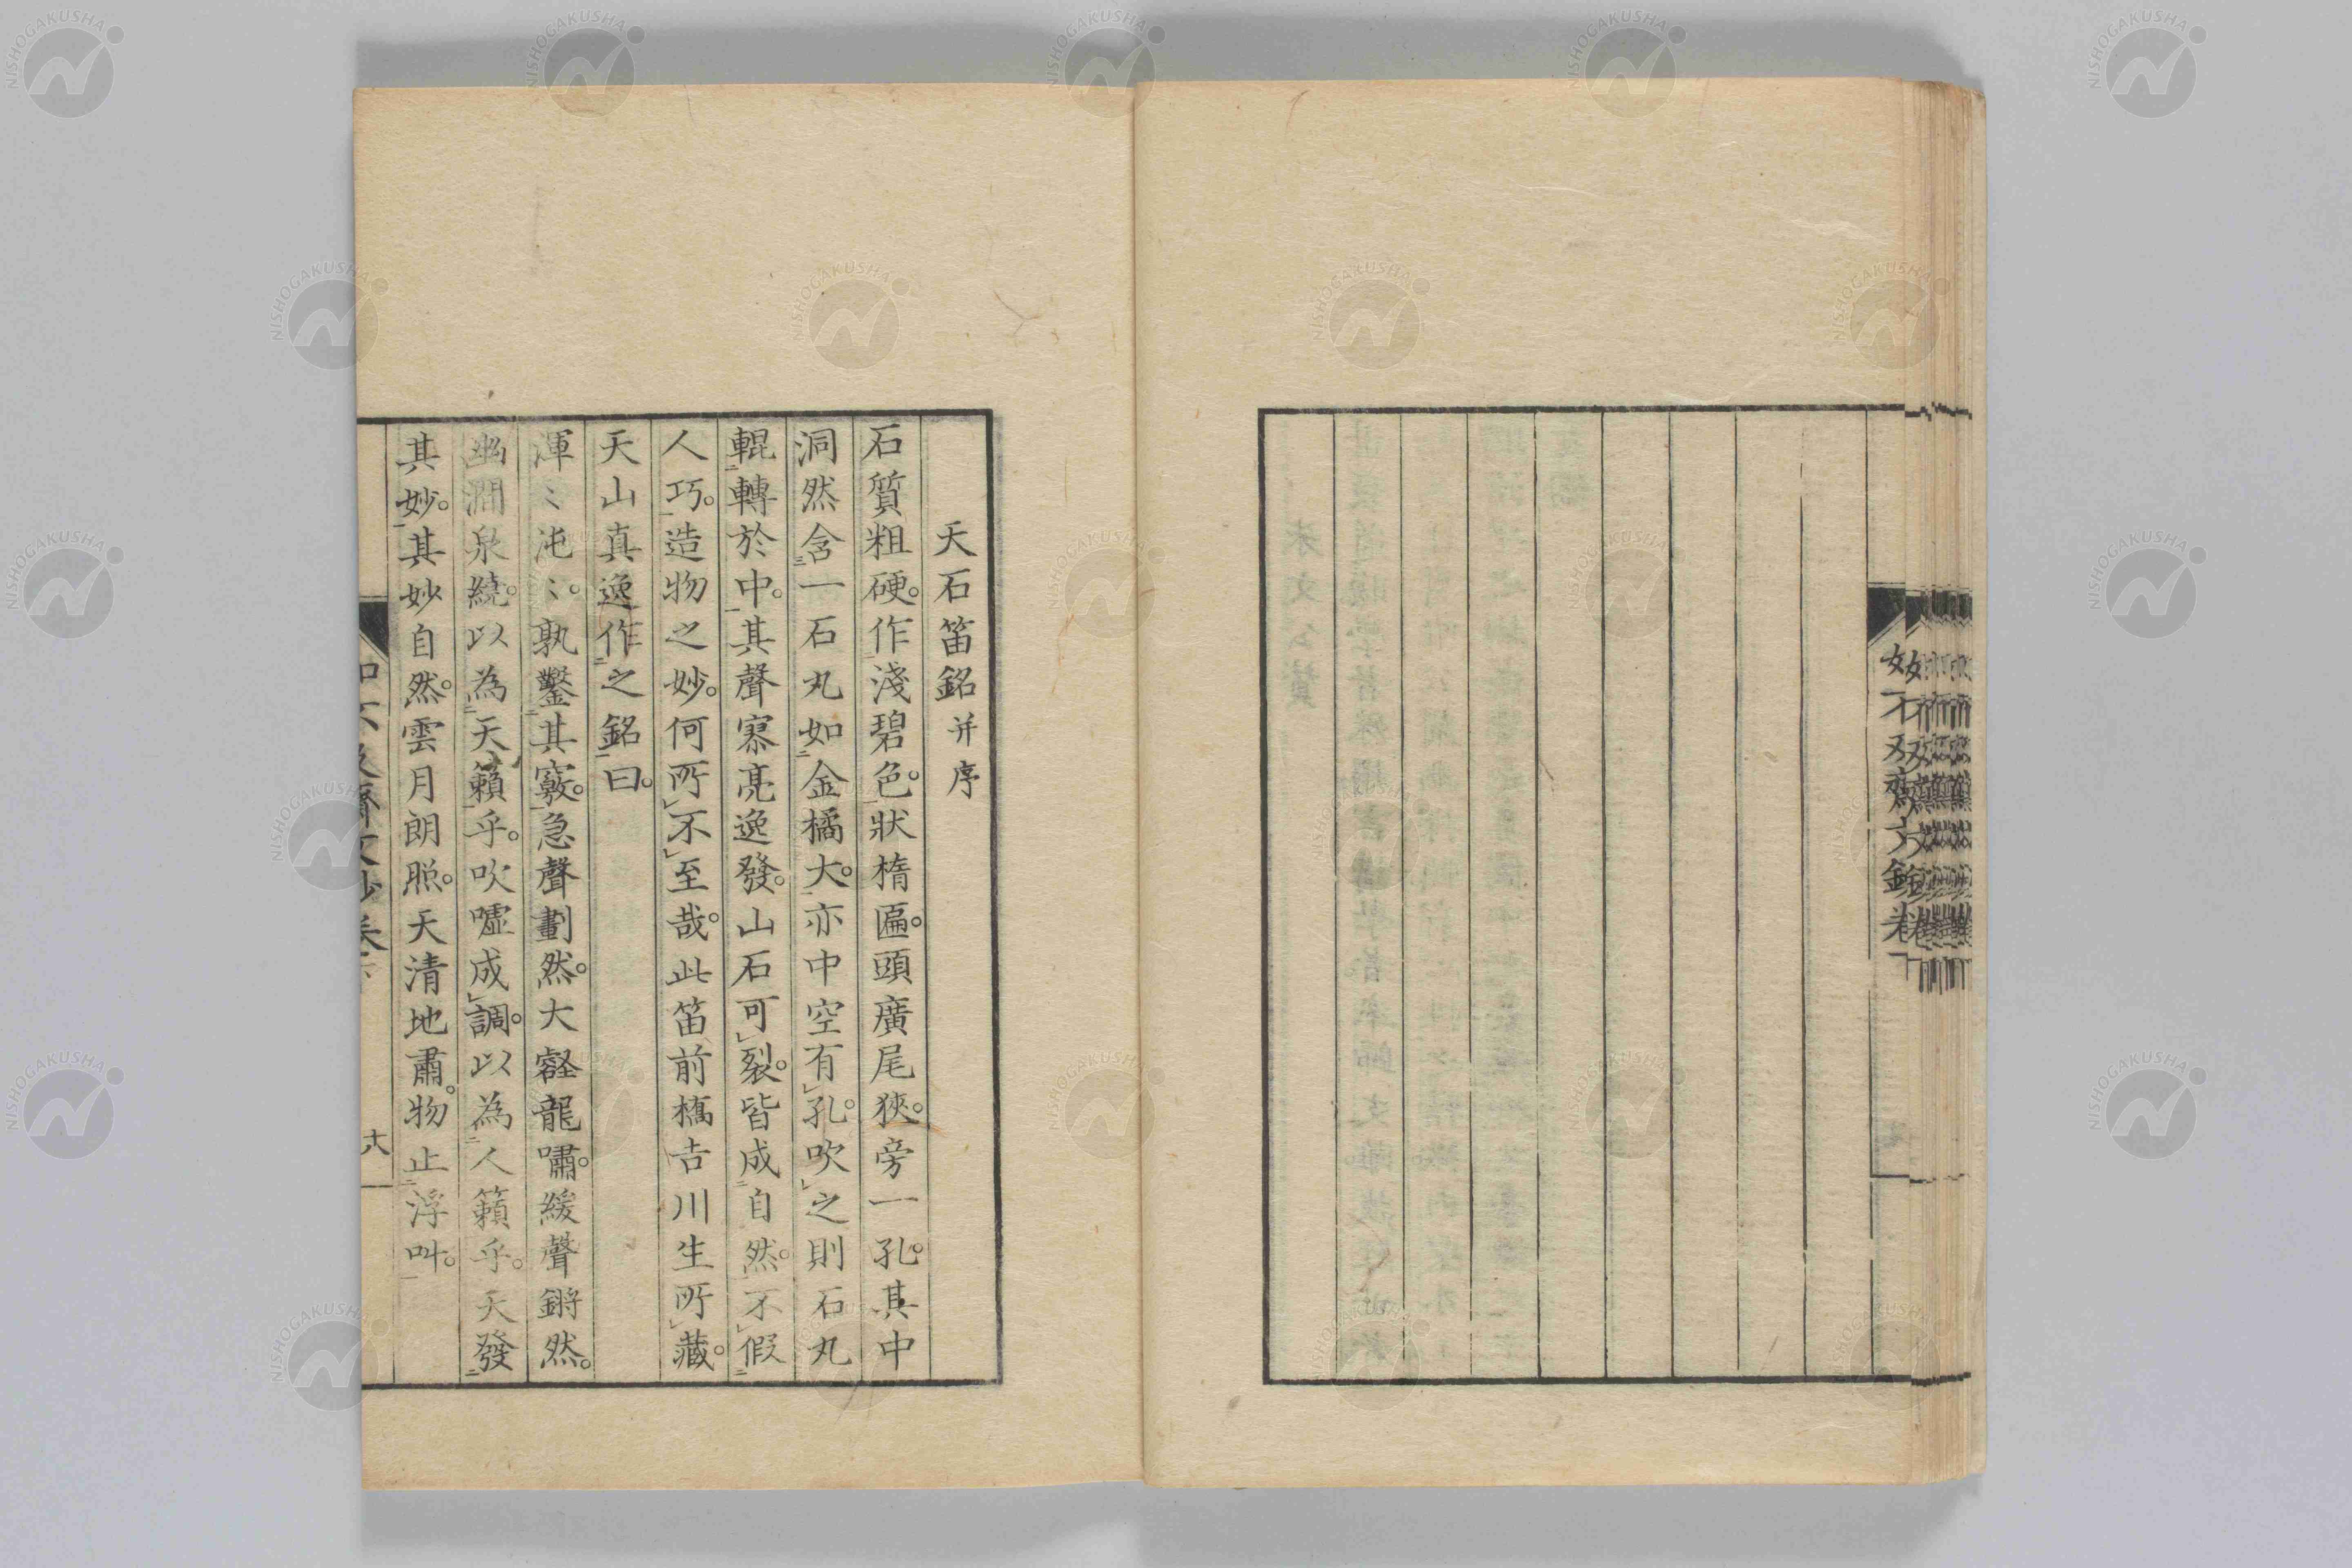 天石笛銘并序
石質粗硬。作淺碧色。狀楕匾。頭廣尾狹。旁一孔。其中
洞然含一石丸如金橘大。亦中空有孔。吹之則石丸
輥轉於中。其聲寥亮逸發。山石可裂。皆成自然。不假
人巧。造物之妙。何所不至哉。此笛前橋吉川生所藏。
天山真逸作之銘曰。
渾〻沌〻。孰鑿其竅。急聲劃然。大壑龍嘯。緩聲鏘然。
幽澗泉繞。以為天籟乎。吹噓成調。以為人籟乎。天發
其妙。其妙自然。雲月朗照。天清地肅。物止浮叫。
如不及齋文鈔卷下
十八
NISHOGAKUSHA